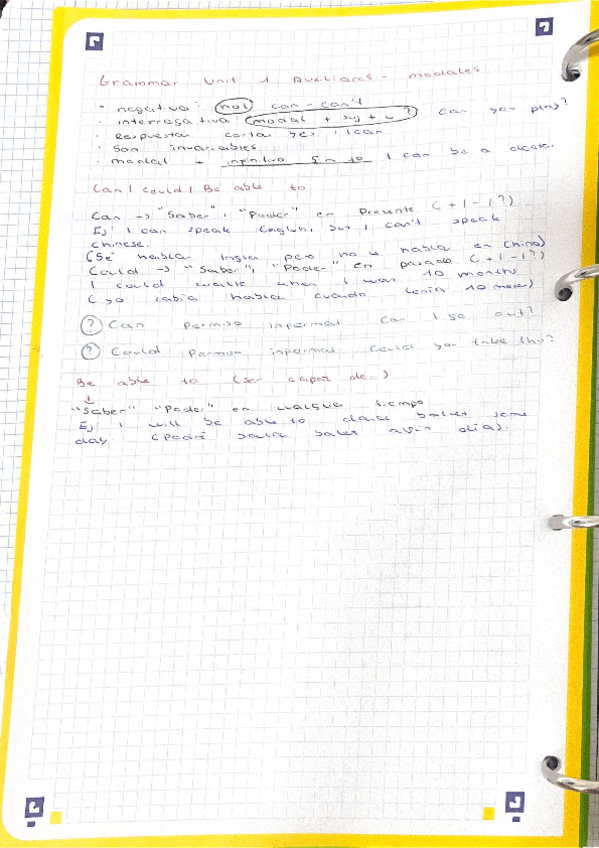 Grammar Unit 1 Auxiliares - modales
- negativa: not can - can't
· interrogativa: modal + suj + v ? Can you play?
· Respuesta corta yes, I can
· Son invariables
· modal + infinitivo sin to I can be a
Can / Could / Be able to
Can -> "Saber", "Poder" en Presente (+ / - / ?)
Ej: I can speak English, but I can't speak
chinese.
(Sé hablar pero no sé hablar en chino)
Could -> "Saber", "Poder" en pasado (+ / - / ?)
I could walk when I was 10 months
(yo sabía hablar cuando tenía 10 meses)
? Can Permiso informal Can I go out?
? Could Permiso informal Could you take this?
Be able to (ser capaz de..)
↓
"Saber" "Poder" en cualquier tiempo
Ej: I will be able to dance ballet some
day. (Podré bailar balet algún día).